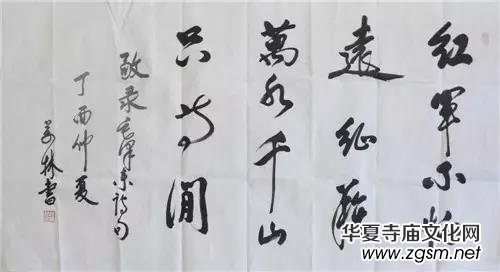 紅軍不怕
遠征難
萬水千山
只等閒
敬录毛泽东诗句
丁酉仲夏
林書
华夏寺庙文化网
www.zgsm.net